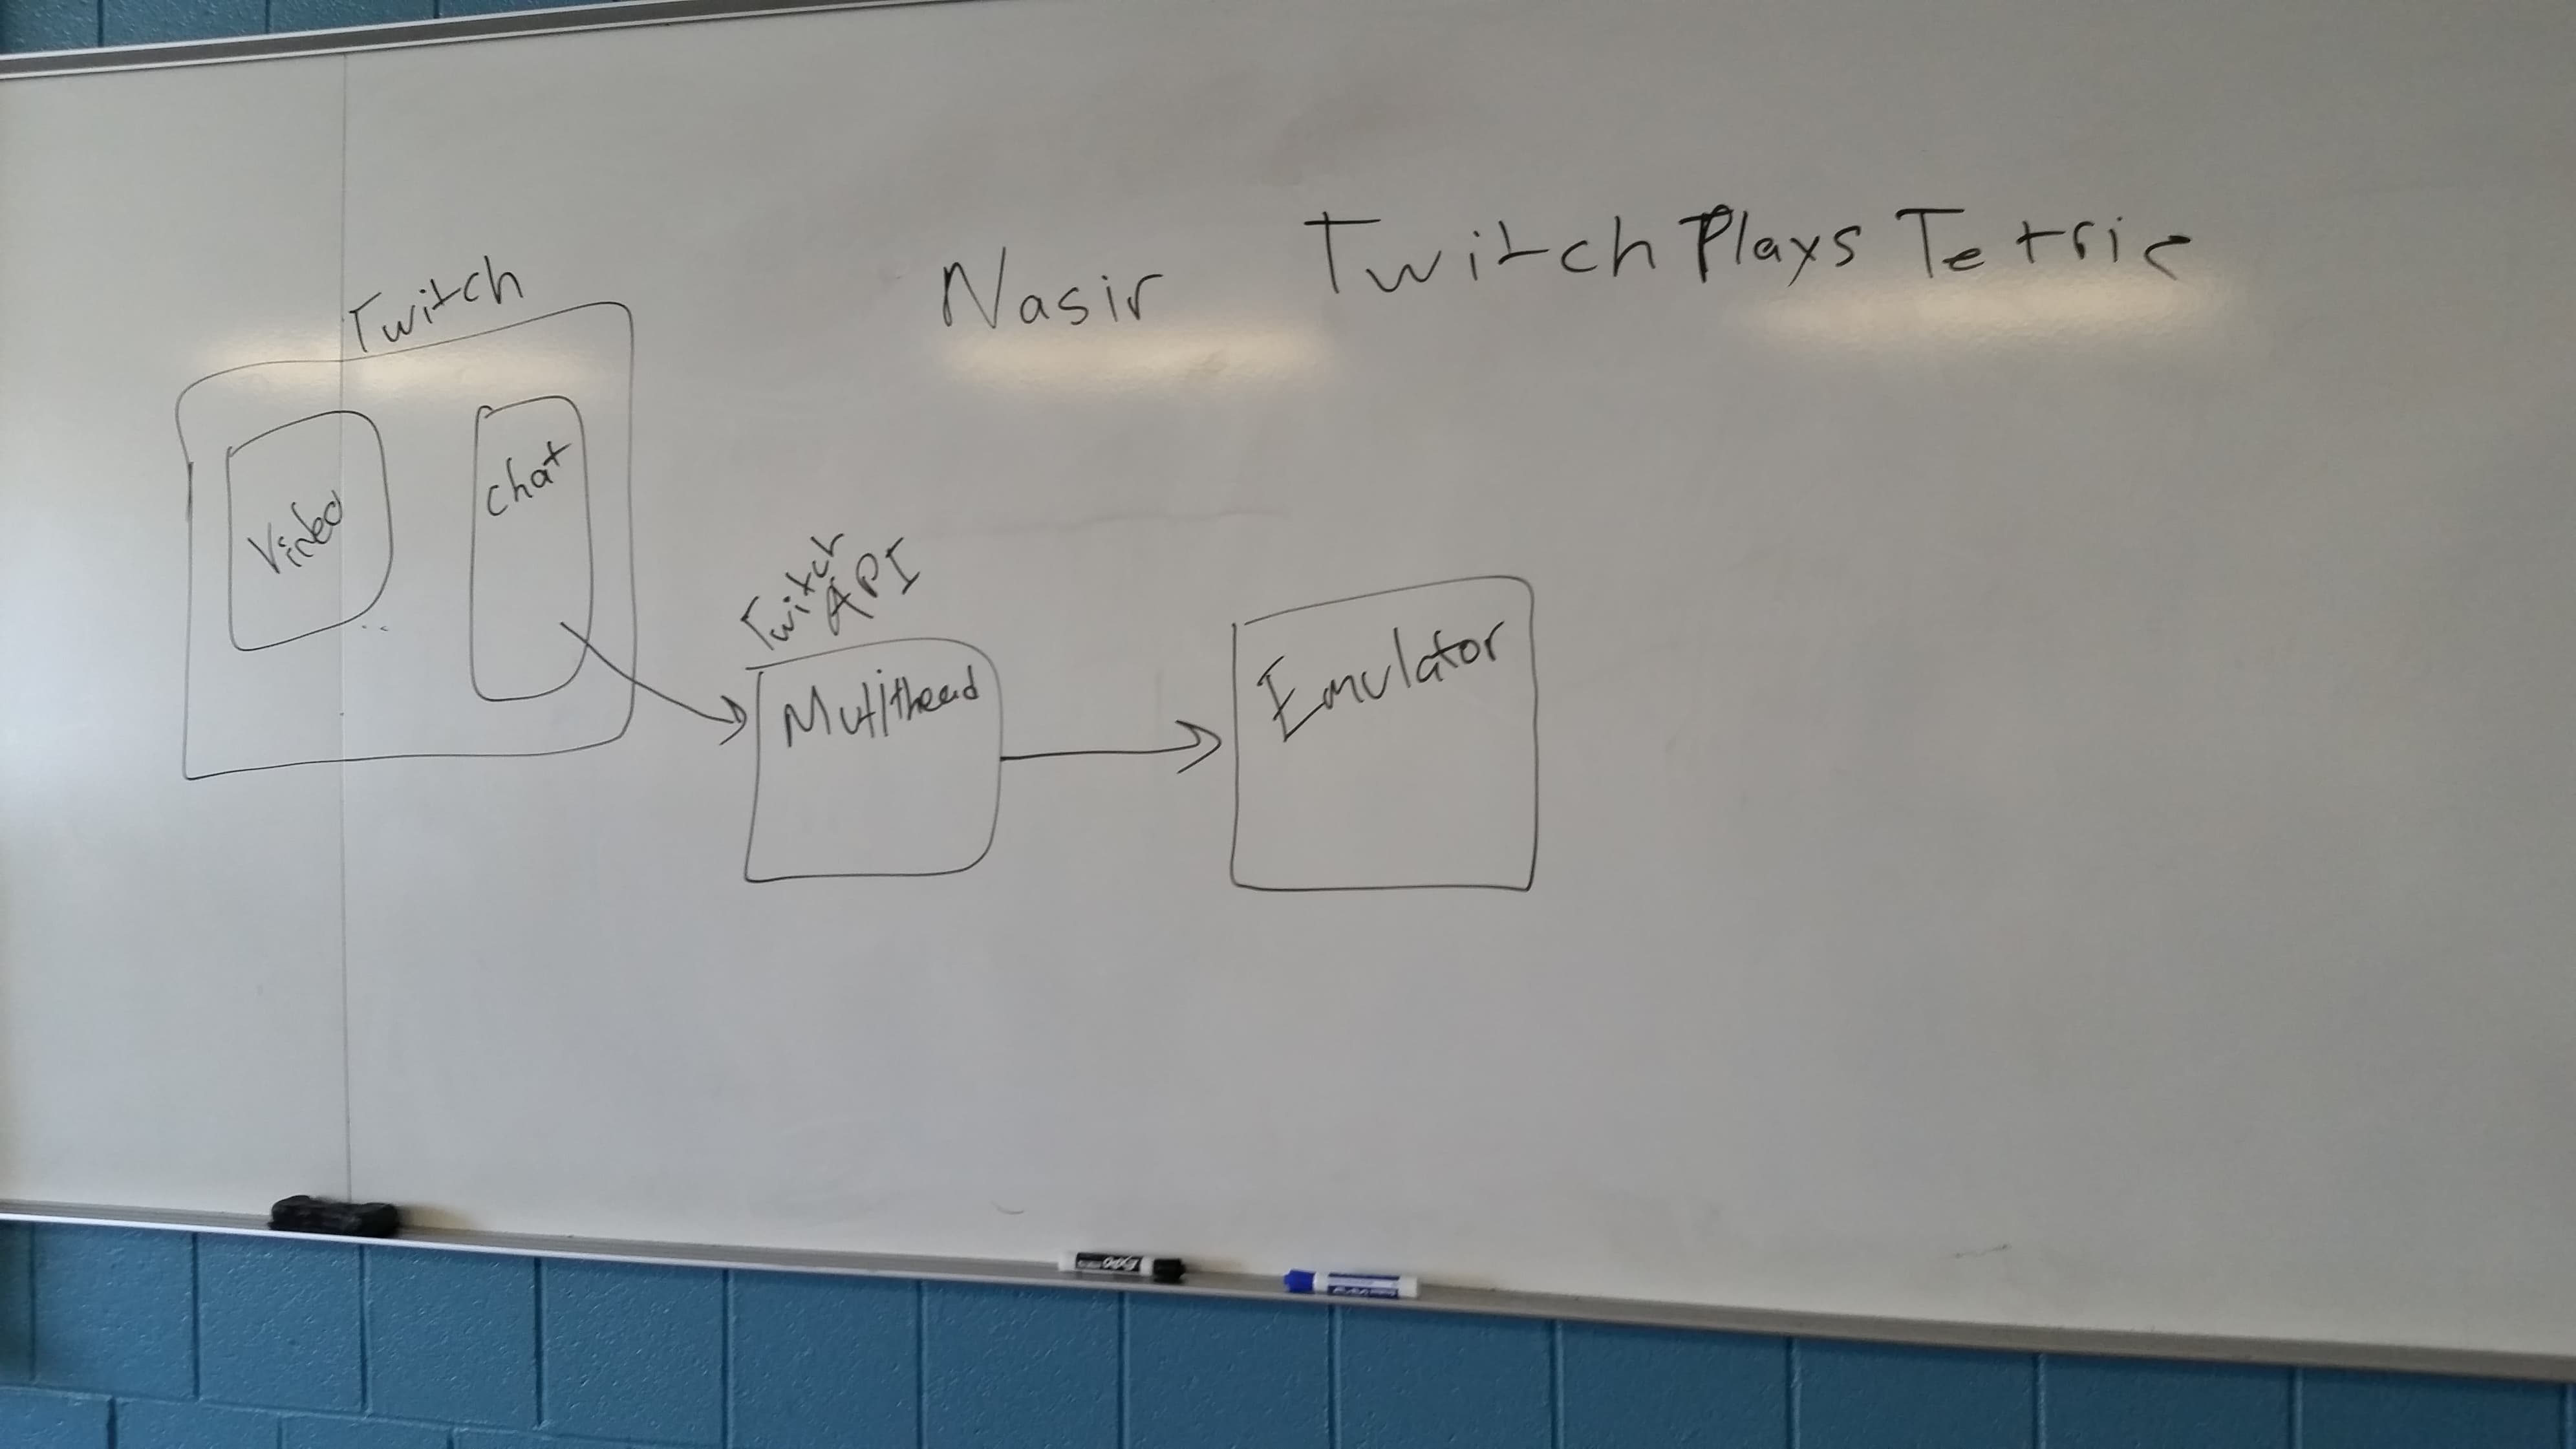 Nasir Twitch Plays Tetris
Twitch
Video
chat
Twitch
API
Mutlthead
Emulator
EXPO